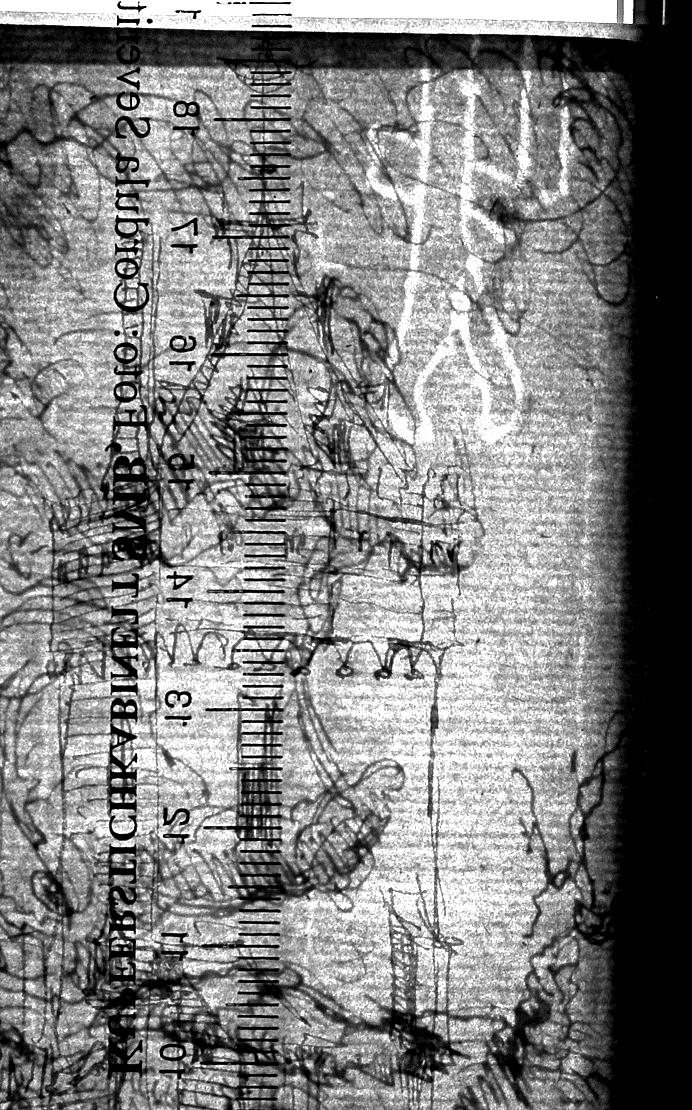 KUPFERSTICHKABINETT SMB, Foto: Cordula Severit
10 11 12 13 14 15 16 17 18